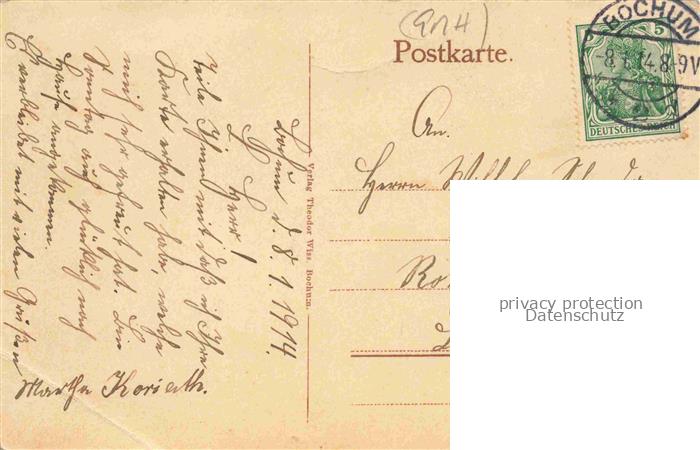 (9nH)
Postkarte.
BOCHUM
-8.1.14.8-9V
5
DEUTSCHES REICH
An.
Herrn
privacy protection
Datenschutz
Verlag Theodor Wiss, Bochum.
Bochum d. 8. 1. 1914.
L. Herr!
Teile Ihnen mit daß ich Ihre
Karte erhalten habe, welche
mich sehr gefreut hat. Bin
Sonntag auch glücklich nach
Hause angekommen.
Es verbleibet mit vielen Grüßen
Martha Koriath.